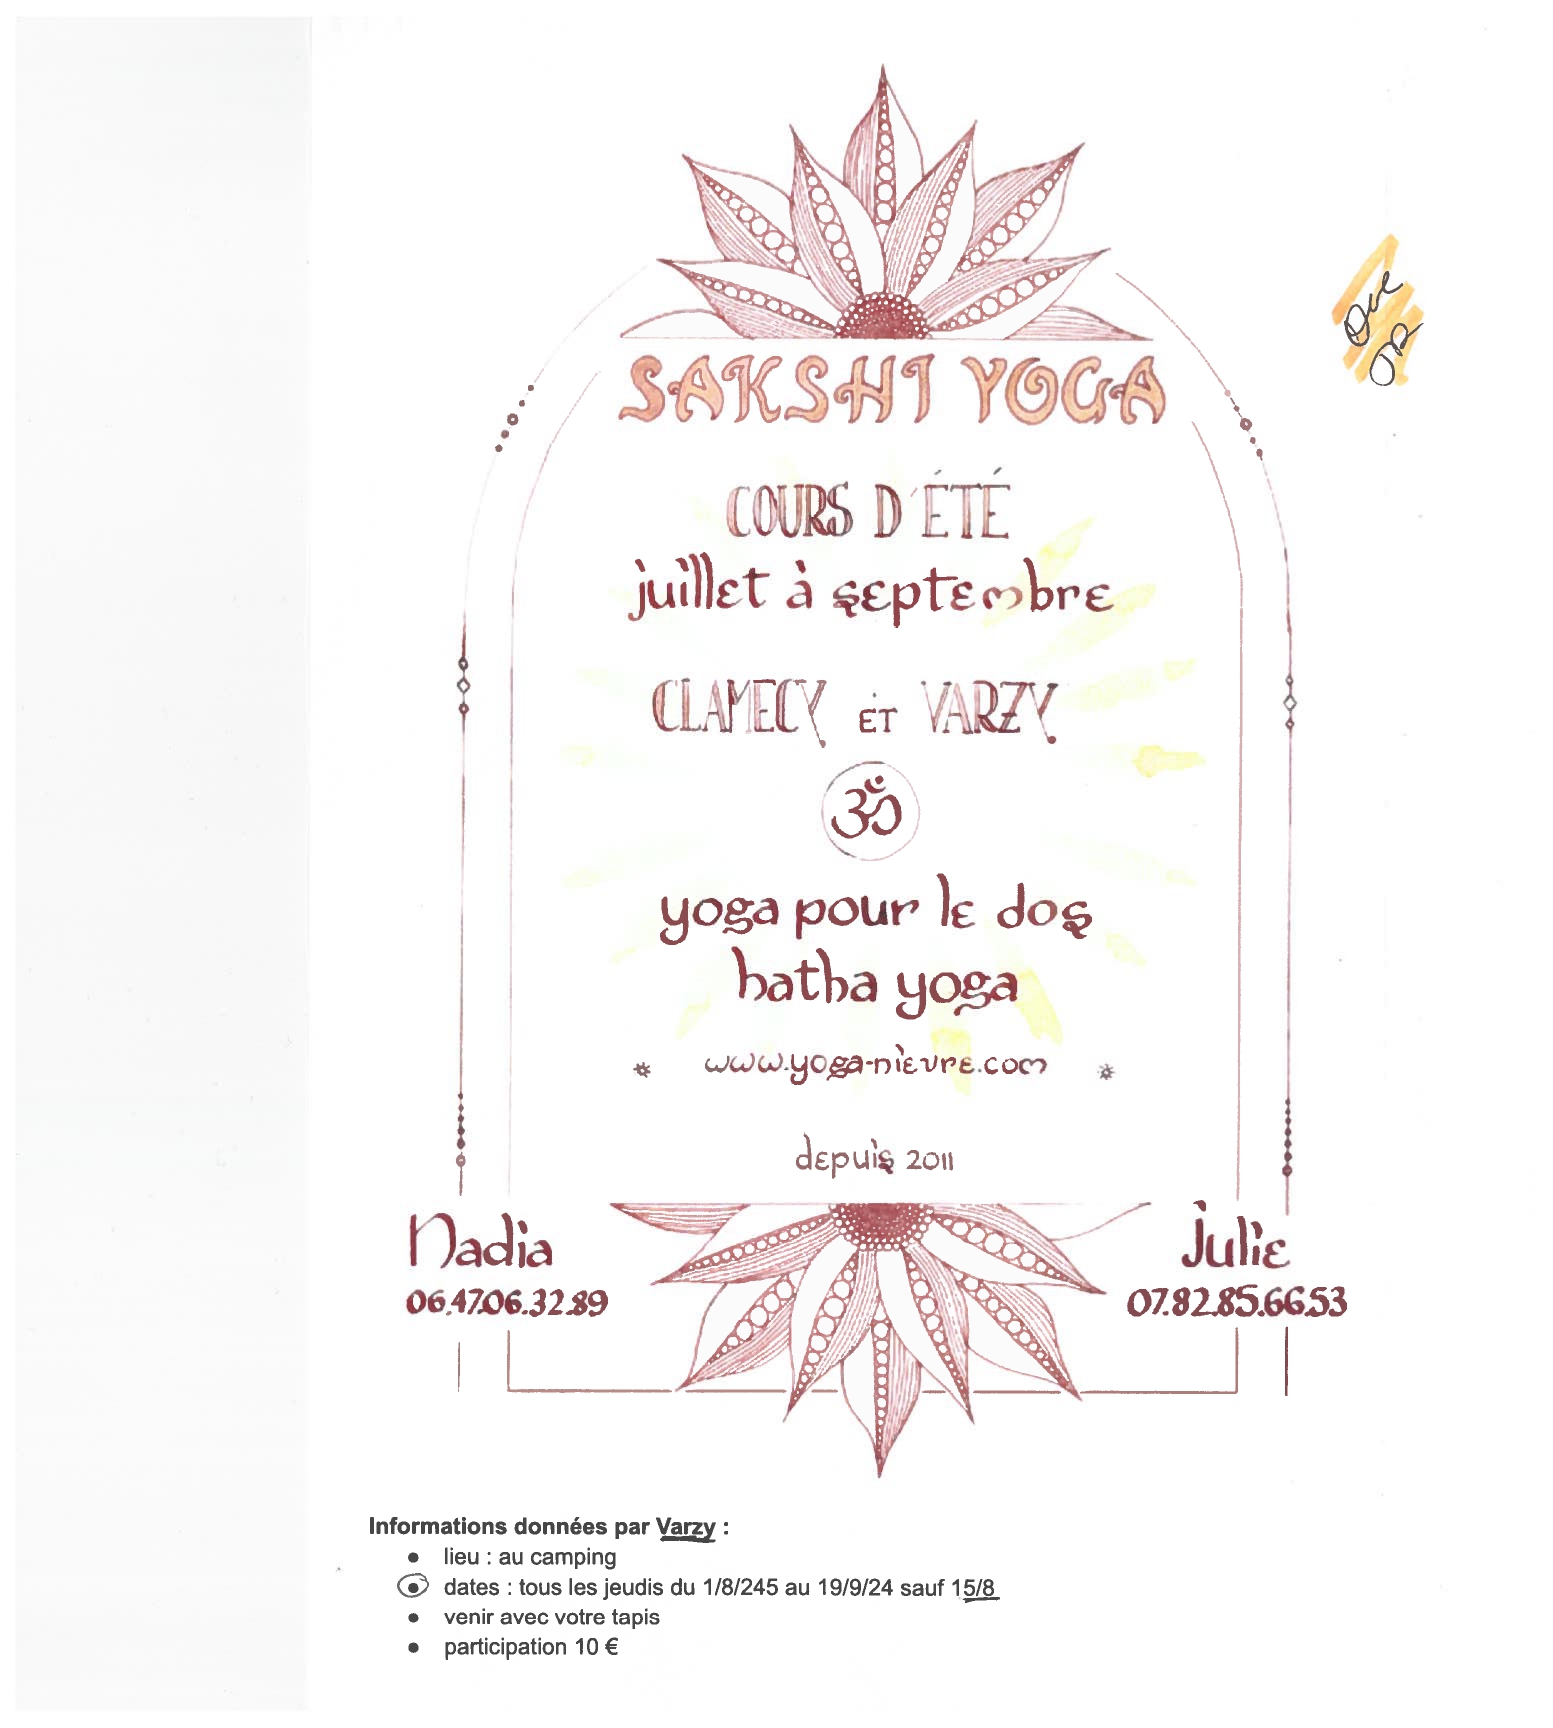 SAKSHI YOGA
COURS D'ÉTÉ
juillet à septembre
CLAMECY ET VARZY
ॐ
yoga pour le dos
hatha yoga
* www.yoga-nievre.com *
depuis 2011
Nadia
06.47.06.32.89
Julie
07.82.85.66.53
Informations données par Varzy :
• lieu : au camping
• dates : tous les jeudis du 1/8/245 au 19/9/24 sauf 15/8
• venir avec votre tapis
• participation 10 €